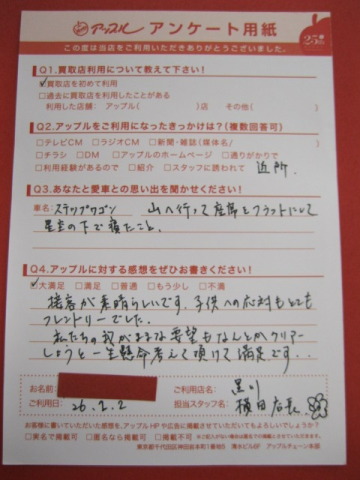 アップル アンケート用紙 25th
この度は当店をご利用いただきありがとうございました。
Q1.買取店利用について教えて下さい!
☑買取店を初めて利用
□過去に買取店を利用したことがある
利用した店舗: アップル( )店 その他( )
Q2.アップルをご利用になったきっかけは?(複数回答可)
□テレビCM □ラジオCM □新聞・雑誌(媒体名/ )
□チラシ □DM □アップルのホームページ □通りがかりで
□利用経験があるので □紹介 □スタッフに誘われて 近所
Q3.あなたと愛車との思い出を聞かせください!
車名: ステップワゴン 山へ行って座席をフラットにして
星空の下で寝たこと。
Q4.アップルに対する感想をぜひお書きください!
☑大満足 □満足 □普通 □もう少し □不満
接客が素晴らしいです。子供への応対もとても
フレンドリーでした。
私たちの我がままな要望もなんとかクリアー
しようと一生懸命考えて頂けて満足です..
お名前: ご利用店名: 黒川
ご利用日: 26.2.2 担当スタッフ名: 横田店長
お客様に書いていただいた感想を、アップルHPや広告に掲載させていただいてもよろしいでしょうか?
□実名で掲載可 □匿名なら掲載可 □掲載不可
東京都千代田区神田岩本町1番地5 清水ビル6F アップルチェーン本部